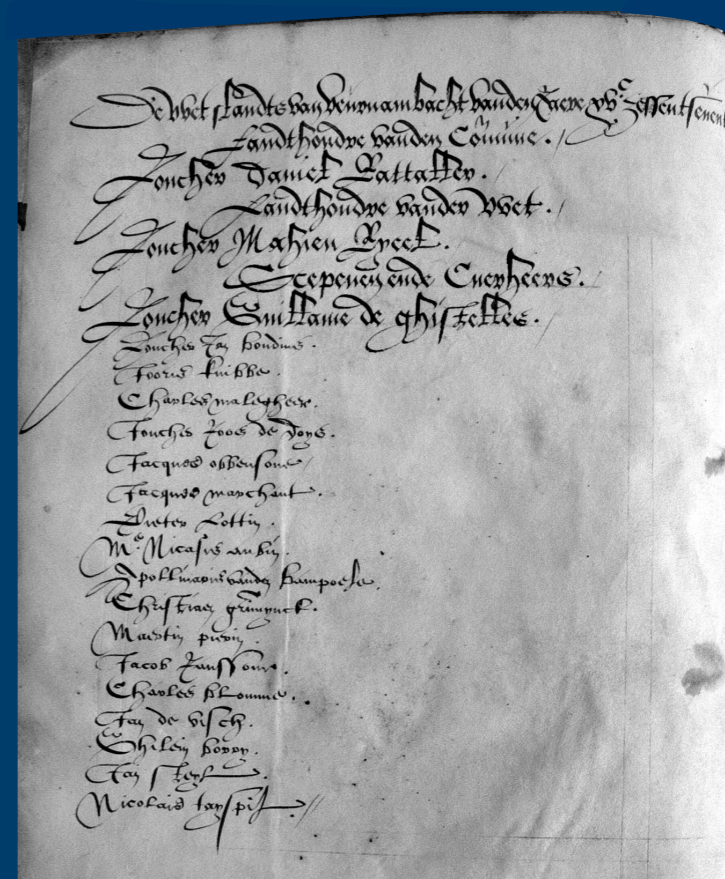 De Wet slandts van veurnambacht vanden Jaere xvᶜ zessentseuen
Landthoudre vanden Comune.
Joncher Daniel Battaller.
Landthoudre vander Wet.
Joncher Mahieu Ryeel.
Scepenen ende Cuerheers.
Joncher Guillame de ghistelles.
Joncher Jan bondius.
Jooris knibbe.
Charles malegheer.
Joncher Joos de
Jacques obbensone
Jacques marchant.
Pieter Lottin.
Mᵉ Nicasis aubin.
Apollinaris vanden kampoele.
Christiaen
Maertin pierin.
Jacob Janssone.
Charles blomme.
Jan de visch.
Ghilein bovry.
Jan
Nicolais tayspil